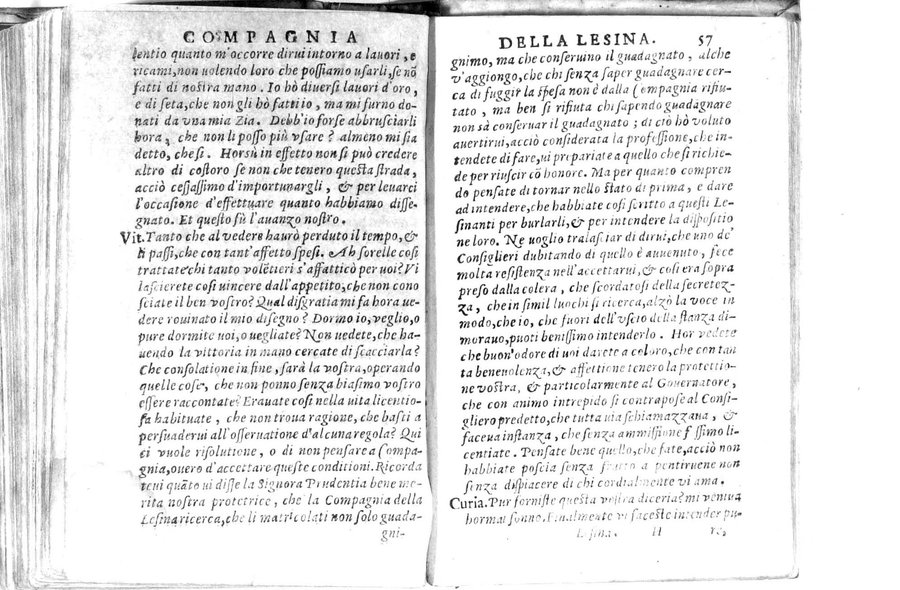 COMPAGNIA
lentio quanto m'occorre dirui intorno a lauori, e
ricami, non uolendo loro che possiamo usarli, se nõ
fatti di nostra mano. Io hò diuersi lauori d'oro,
e di seta, che non gli hò fatti io, ma mi furno do-
nati da vna mia Zia. Debb'io forse abbrusciarli
hora, che non li posso più vsare? almeno mi sia
detto, che si. Horsù in effetto non si può credere
altro di costoro se non che tenero questa strada,
acciò cessassimo d'importunargli, & per leuarci
l'occasione d'effettuare quanto habbiamo disse-
gnato. Et questo sù l'auanzo nostro.
Vit. Tanto che al vedere haurò perduto il tempo, &
li passi, che con tant'affetto spesi. Ah sorelle cosi
trattate chi tanto volẽtieri s'affatticò per uoi? Vi
lascierete cosi uincere dall'appetito, che non cono
sciate il ben vostro? Qual disgratia mi fa hora ue-
dere rouinato il mio disegno? Dormo io, veglio, o
pure dormite uoi, o uegliate? Non uedete, che ha-
uendo la vittoria in mano cercate di scacciarla?
Che consolatione in fine, sarà la vostra, operando
quelle cose, che non ponno senza biasimo vostro
essere raccontate? Erauate cosi nella uita licentio-
sa habituate, che non troua ragione, che basti a
persuaderui all'osseruatione d'alcuna regola? Qui
ci vuole risolutione, o di non pensare a Compa-
gnia, ouero d'accettare queste conditioni. Ricorda
teui quãto ui disse la Signora Prudentia bene me-
rita nostra protetrice, che la Compagnia della
Lesina ricerca, che li matricolati non solo guada-
gni-
DELLA LESINA. 57
gnimo, ma che conseruino il guadagnato, alche
v'aggiongo, che chi senza saper guadagnare cer-
ca di fuggir la spesa non è dalla Compagnia rifiu-
tato, ma ben si rifiuta chi sapendo guadagnare
non sà conseruar il guadagnato; di ciò hò voluto
auertirui, acciò considerata la professione, che in-
tendete di fare, ui prepariate a quello che si richie-
de per riuscir cõ honore. Ma per quanto compren
do pensate di tornar nello stato di prima, e dare
ad intendere, che habbiate cosi scritto a questi Le-
sinanti per burlarli, & per intendere la dispositio
ne loro. Ne uoglio tralasciar di dirui, che uno de'
Consiglieri dubitando di quello è auuenuto, fece
molta resistenza nell'accettarui, & cosi era sopra
preso dalla colera, che scordatosi della secretez-
za, che in simil luochi si ricerca, alzò la voce in
modo, che io, che fuori dell'vscio della stanza di-
morauo, puoti benissimo intenderlo. Hor vedete
che buon'odore di uoi darete a coloro, che con tan
ta beneuolenza, & affettione tenero la protettio-
ne vostra, & particolarmente al Gouernatore,
che con animo intrepido si contrapose al Consi-
gliero predetto, che tutta uia schiamazzaua, &
faceua instanza, che senza ammissione f ssimo li-
centiate. Pensate bene quello, che fate, acciò non
habbiate poscia senza frutto a pentiruene non
senza dispiacere di chi cordialmente vi ama.
Curia. Pur forniste questa vostra diceria? mi veniua
hormai sonno. Finalmente vi faceste intender pu-
Lesina. H re,